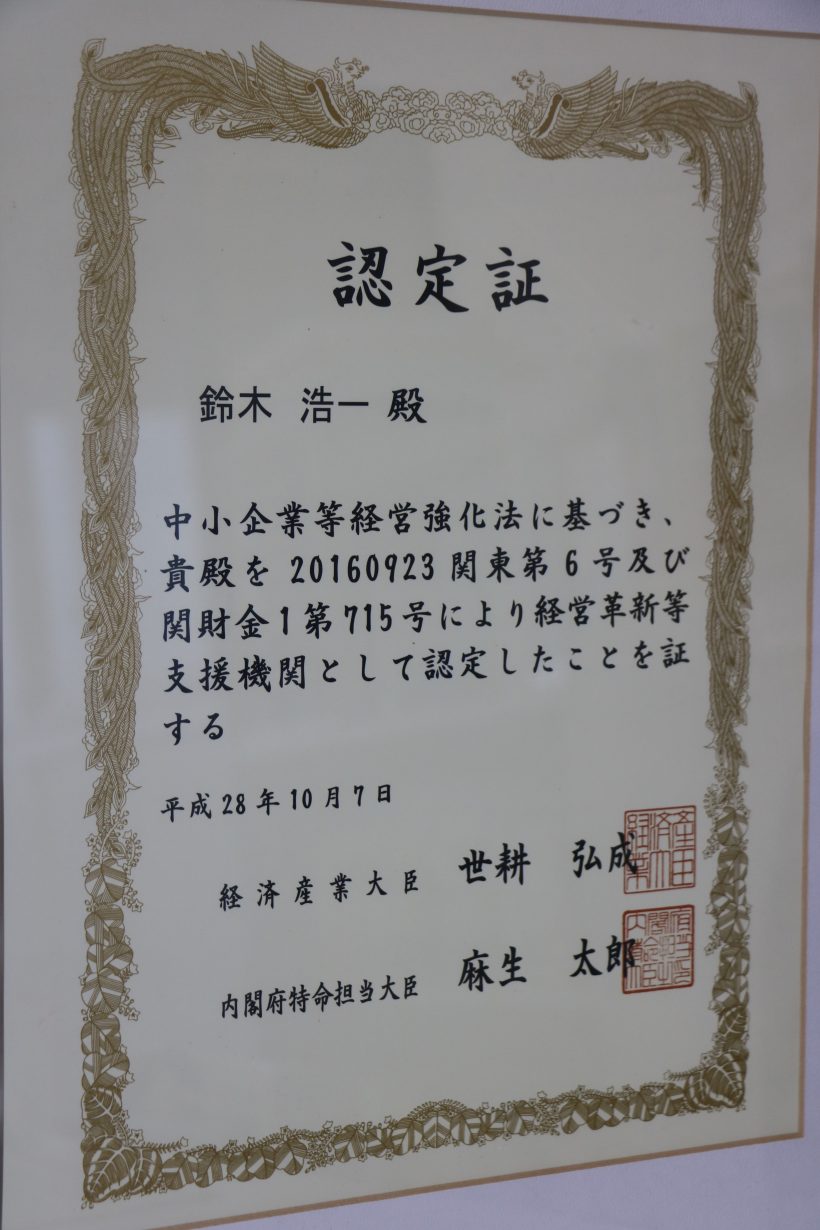 認定証
鈴木 浩一 殿
中小企業等経営強化法に基づき、
貴殿を 20160923関東第6号及び
関財金1第715号により経営革新等
支援機関として認定したことを証
する
平成28年10月7日
経済産業大臣 世耕 弘成
内閣府特命担当大臣 麻生 太郎